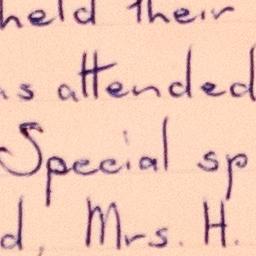 held their
s attended
Special sp
d, Mrs. H.